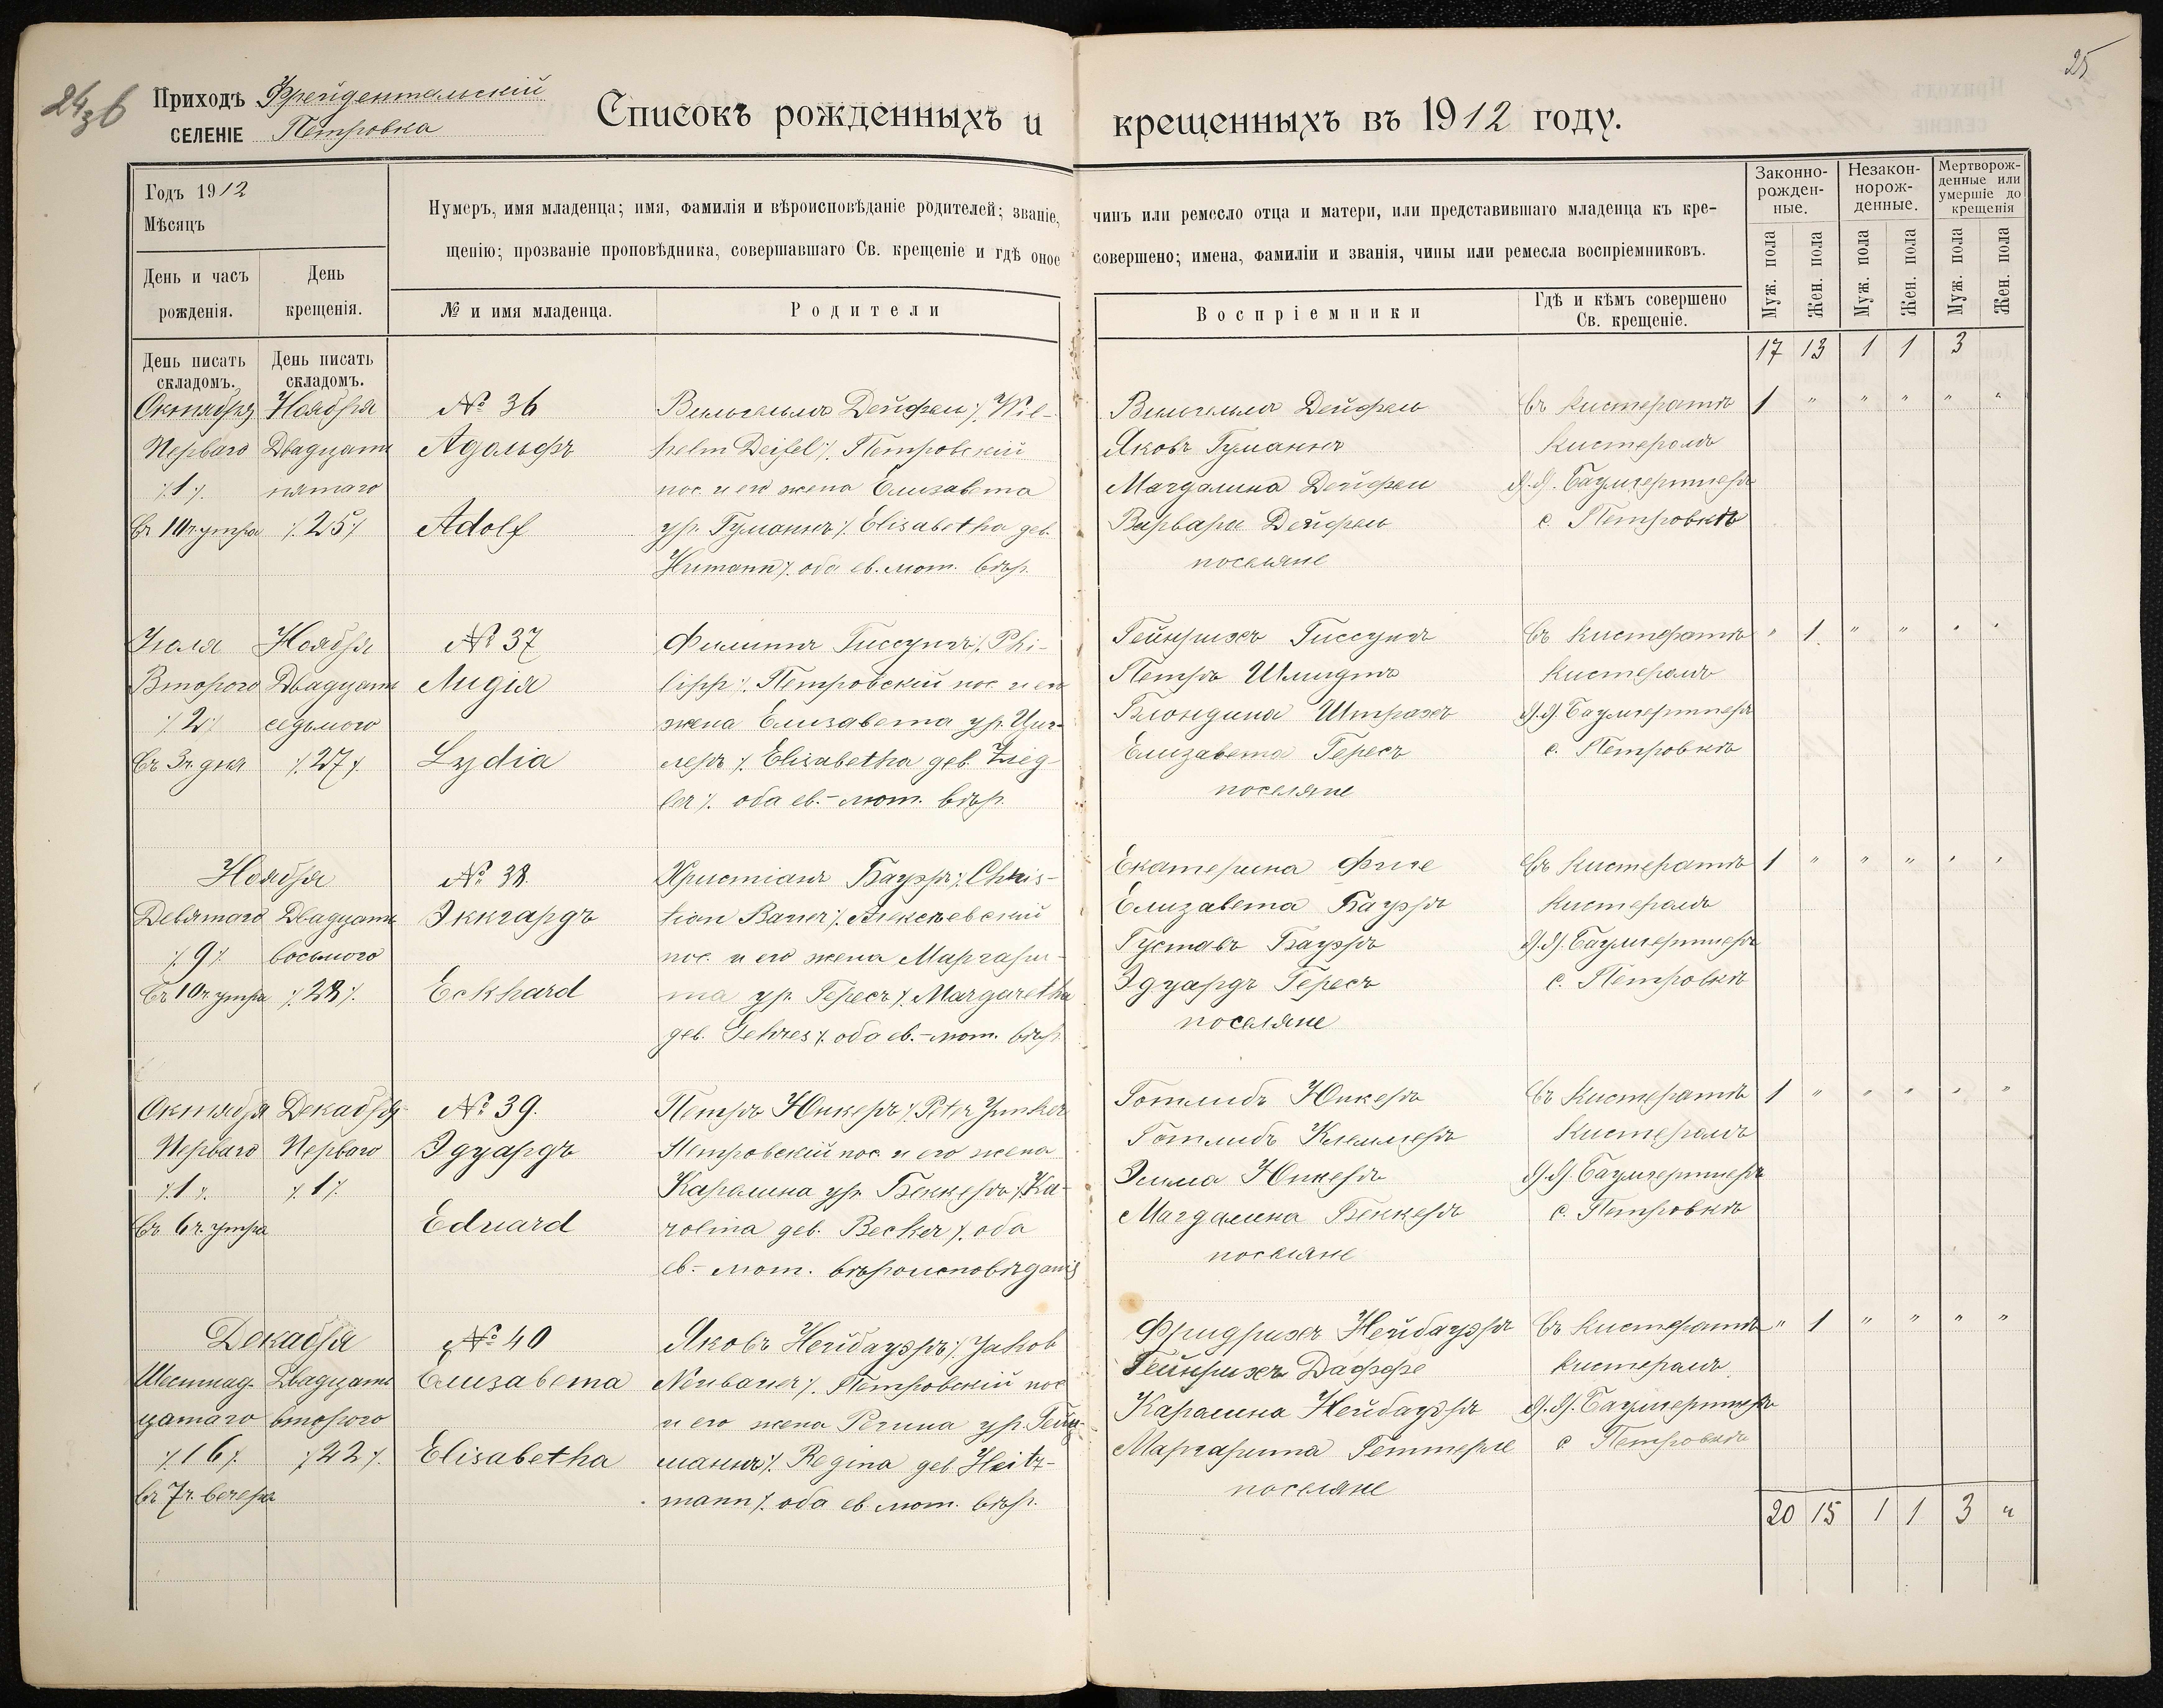 24 зб
Приходъ Фрейдентальскій
СЕЛЕНІЕ Петровка
Списокъ рожденныхъ и крещенныхъ въ 1912 году.
25
Годъ 1912
Мѣсяцъ
День и часъ рожденія.
День крещенія.
Нумеръ, имя младенца; имя, фамилія и вѣроисповѣданіе родителей; званіе, чинъ или ремесло отца и матери, или представившаго младенца къ кре-
щенію; прозваніе проповѣдника, совершавшаго Св. крещеніе и гдѣ оное совершено; имена, фамиліи и званія, чины или ремесла воспріемниковъ.
№ и имя младенца.
Родители
Воспріемники
Гдѣ и кѣмъ совершено
Св. крещеніе.
Законно-
рожден-
ные.
Незакон-
норож-
денные.
Мертворож-
денные или
умершіе до
крещенія
Муж. пола
Жен. пола
Муж. пола
Жен. пола
Муж. пола
Жен. пола
День писать
складомъ.
День писать
складомъ.
17 13 1 1 3
Октября
Перваго
٪1٪
въ 10 ч утра
Ноября
Двадцать
пятаго
٪25٪
№ 36
Адольфъ
Adolf
Вильгельмъ Дейфель٪ Wil-
helm Deifel٪ Петровскій
пос. и его жена Елизавета
ур. Гуманнъ٪ Elisabetha geb.
Humann٪ оба ев. лют. вѣр.
Вильгельмъ Дейфель
Яковъ Гуманнъ
Магдалина Дейфель
Варвара Дейфель
поселяне
Въ Кистератѣ
Кистеромъ
Я. Я. Баумгертнеръ
с. Петровкѣ
1 " " " " "
Іюля
Второго
٪2٪
въ 3 ч. дня
Ноября
Двадцать
седьмого
٪27٪
№ 37
Лидія
Lydia
Филиппъ Гиссунгъ٪ Phi-
lipp٪ Петровскій пос. и его
жена Елизавета ур. Циг-
леръ٪ Elisabetha geb. Zieg-
ler٪ оба ев.-лют. вѣр.
Гейнрихъ Гиссунгъ
Петръ Шмидтъ
Блондина Штрахъ
Елизавета Гересъ
поселяне
Въ Кистератѣ
Кистеромъ
Я. Я. Баумгертнеръ
с. Петровкѣ
" 1 " " " "
Ноября
Девятаго
٪9٪
въ 10 ч утра
Двадцать
восьмого
٪28٪
№ 38.
Эккгардъ
Eckhard
Христіанъ Бауэръ٪ Chris-
tian Bauer٪ Алексѣевскій
пос. и его жена Маргари-
та ур. Гересъ٪ Margaretha
geb. Gehres٪ оба ев.-лют. вѣр.
Екатерина Фиге
Елизавета Бауэръ
Густавъ Бауэръ
Эдуардъ Гересъ
поселяне
Въ Кистератѣ
Кистеромъ
Я. Я. Баумгертнеръ
с. Петровкѣ
1 " " " " "
Октября
Перваго
٪1٪
въ 6 ч. утра
Декабря
Перваго
٪1٪
№ 39.
Эдуардъ
Eduard
Петръ Юнкеръ٪ Peter Junker
Петровскій пос. и его жена
Каролина ур. Беккеръ٪ Ka-
rolina geb. Becker٪ оба
ев.-лют. вѣроисповѣданія
Готлибъ Юнкеръ
Готлибъ Клеммеръ
Эмма Юнкеръ
Магдалина Беккеръ
поселяне
Въ Кистератѣ
Кистеромъ
Я. Я. Баумгертнеръ
с. Петровкѣ
1 " " " " "
Декабря
Шестнад-
цатаго
٪16٪
въ 7 ч. вечера
Двадцать
второго
٪22٪
№ 40
Елизавета
Elisabetha
Яковъ Нейбауэръ٪ Jakob
Neubauer٪ Петровскій пос.
и его жена Регина ур. Гейц-
манъ٪ Regina geb. Heitz-
mann٪ оба ев. лют. вѣр.
Фридрихъ Нейбауэръ
Гейнрихъ Даффе
Каролина Нейбауэръ
Маргарита Геттерле
поселяне
Въ Кистератѣ
Кистеромъ
Я. Я. Баумгертнеръ
с. Петровкѣ
" 1 " " " "
20 15 1 1 3 "